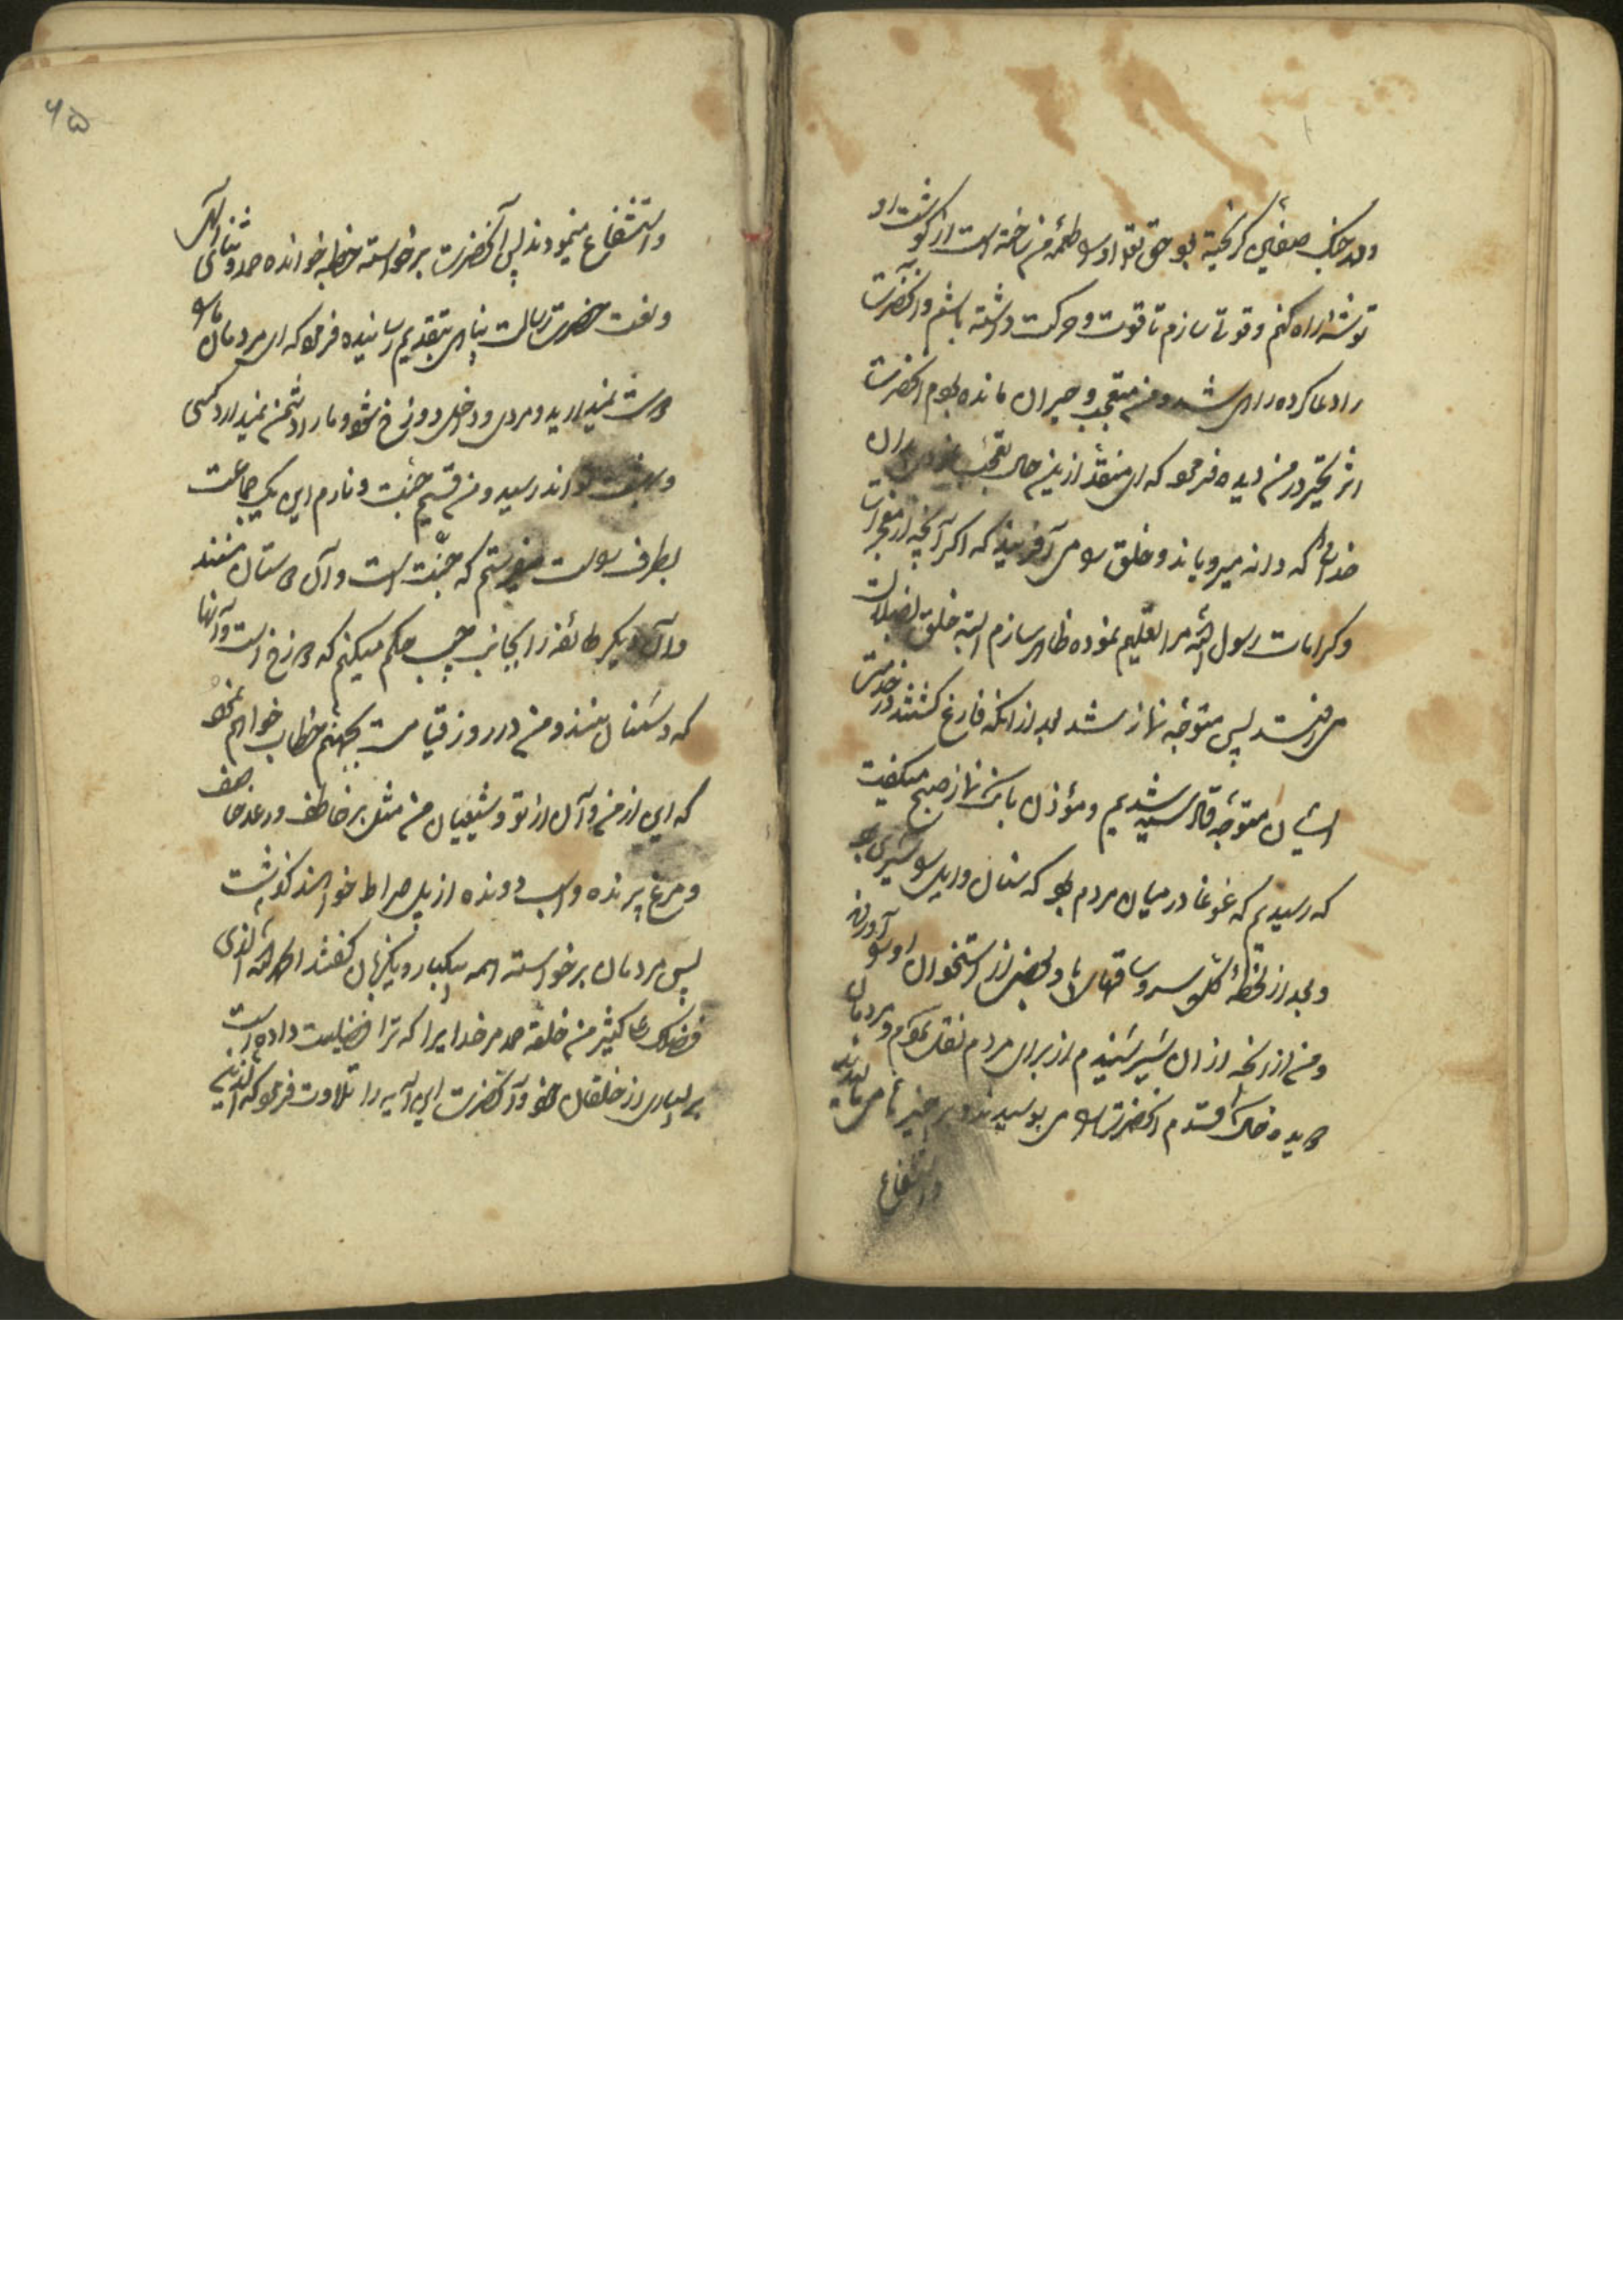 و در جنک صفین کریخته بود حق تعالی او را طعمهٔ من ساخته است از کوشت او
توشهٔ راه کنم و قوتی سازم تا قوت و حرکت داشته باشم و آنحضرت
را دعا کرده راهی شد و من متعجب و حیران مانده بودم آنحضرت
اثر تحیر در من دیده فرمود که ای منقذ ازین حال تعجب
خدائی که دانه میرویاند و خلق را می آفریند که اکر آنچه از معجزات
و کرامات رسول الله مرا تعلیم نموده ظاهر سازم البته خلق بضلالت
می افتند پس متوجه نماز شد بعد از آنکه فارغ کشتند در خدمت
ایشان متوجه قادسیه شدیم و مؤذن بانک نماز صبح میکفت
که رسیدیم که غوغا در میان مردم بود که سنان وایل را شیری برد
و بعد از لحظهٔ کله سر و ساقهای پا و بعضی از استخوان او را آوردند
و من از آنچه از آن شیر شنیدم از برای مردم نقل نمودم و مردمان
دیده خاک قدم آنحضرت را می بوسیدند و بر خیر تا می مالیدند
و استشفاع
۶۵
و استشفاع مینمودند پس آنحضرت برخواسته خطبه خوانده حمد و ثنای الهی
و نعت حضرت رسالت پناهی بتقدیم رسانیده فرمود که ای مردمان ما را
دوست نمیدارید و مردی داخل دوزخ شود و ما را دشمن نمیدارد کسی
و اندر سید و من قسیم جنت و نارم این یک جماعت
بطرف راست میفرستم که جنت است و آن دوستان منند
و آن دیکر طائفه را بجانب چپ حکم میکنم که دوزخ است و آنها
که دشمنان منند و من در روز قیامت بجهنم خطاب خواهم نمود
که این از من و آن از تو و شیعیان من مثل برق خاطف و رعد عاصف
و مرغ پرنده و اسب دونده از پل صراط خواهند کذشت
پس مردمان برخواسته همه بیکبار و یکزبان کفتند الحمد لله الذی
فضلک علی کثیر من خلقه حمد مر خدایرا که ترا فضیلت داده است
بر بسیاری از خلقان خود و آنحضرت این آیه را تلاوت فرمود که الذین